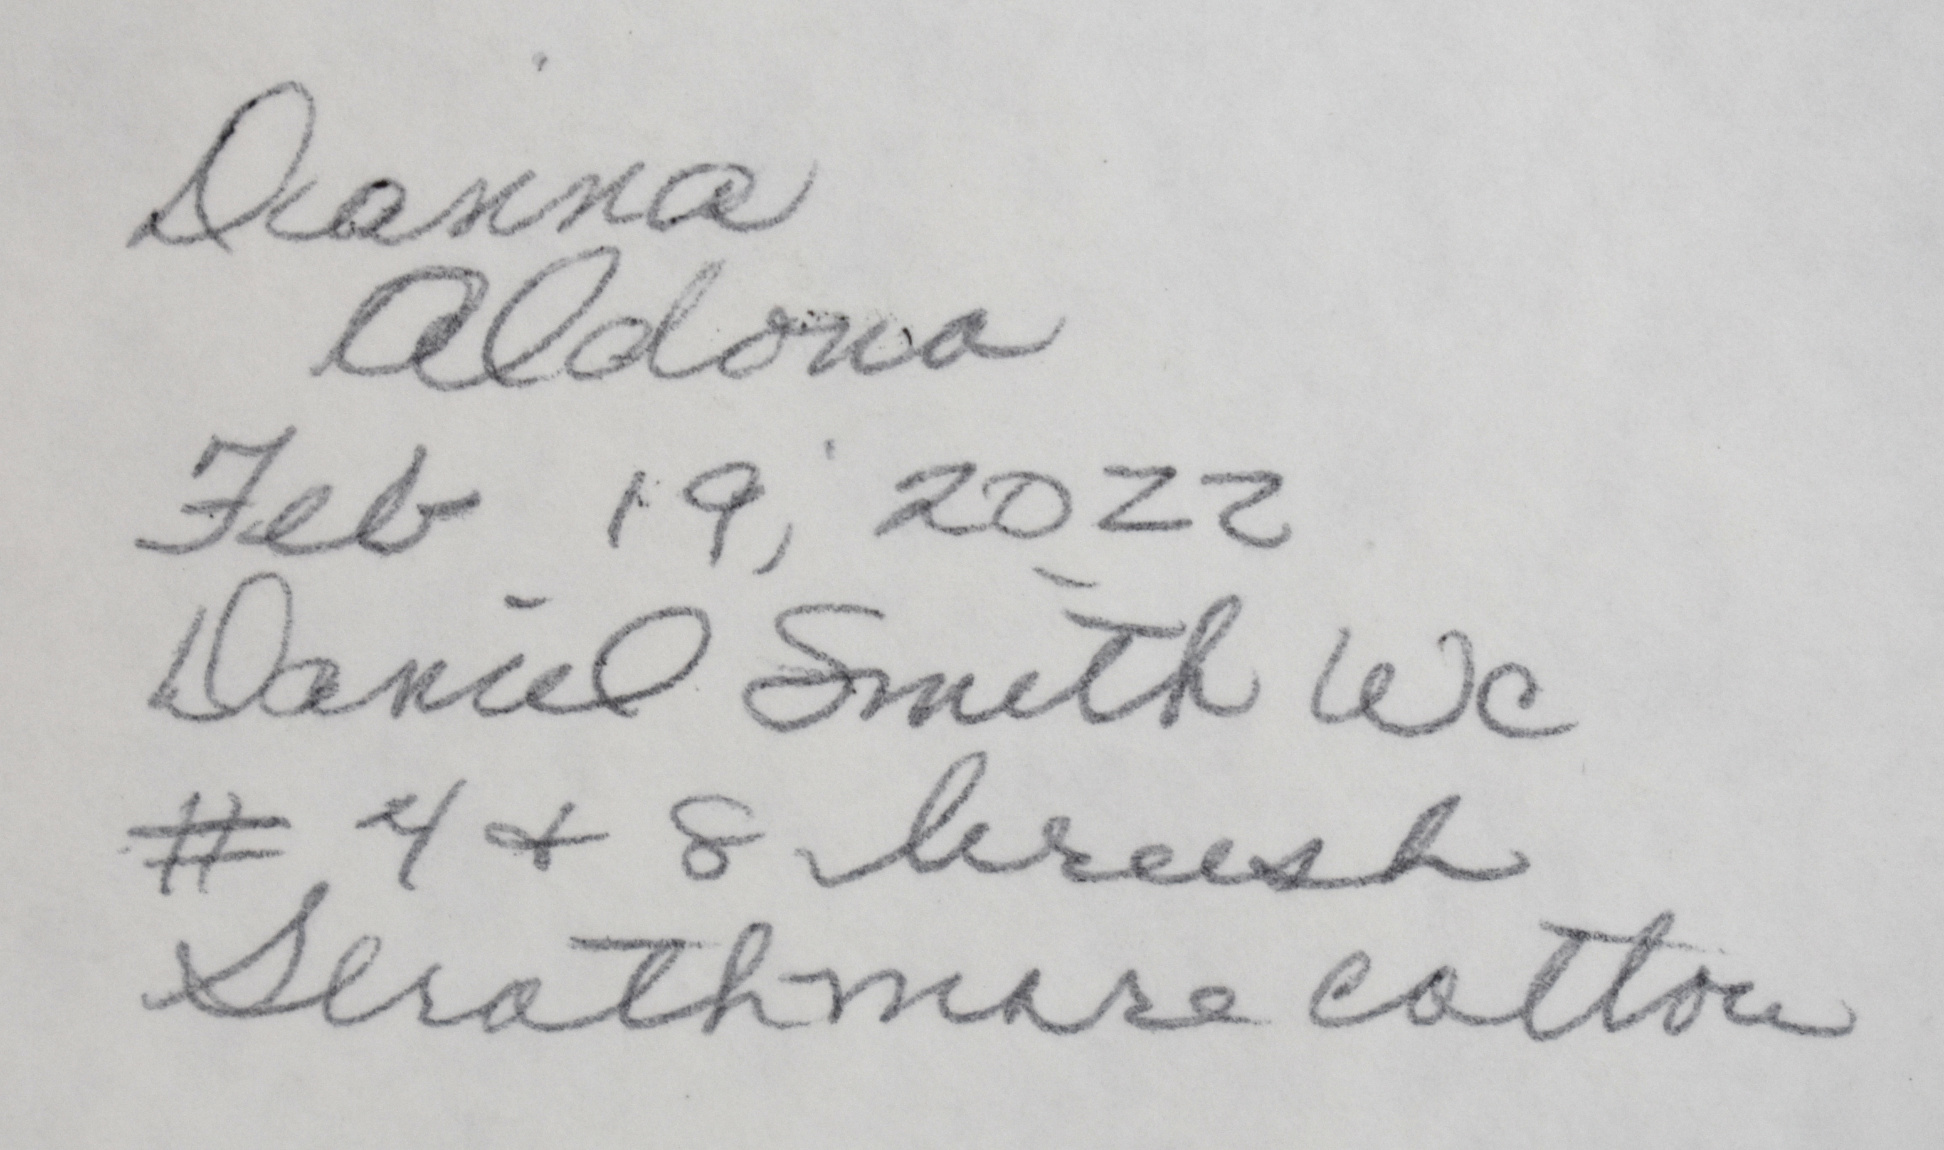 Dianna
Aldona
Feb 19, 2022
Daniel Smith WC
# 4 + 8 brush
Strathmore cotton